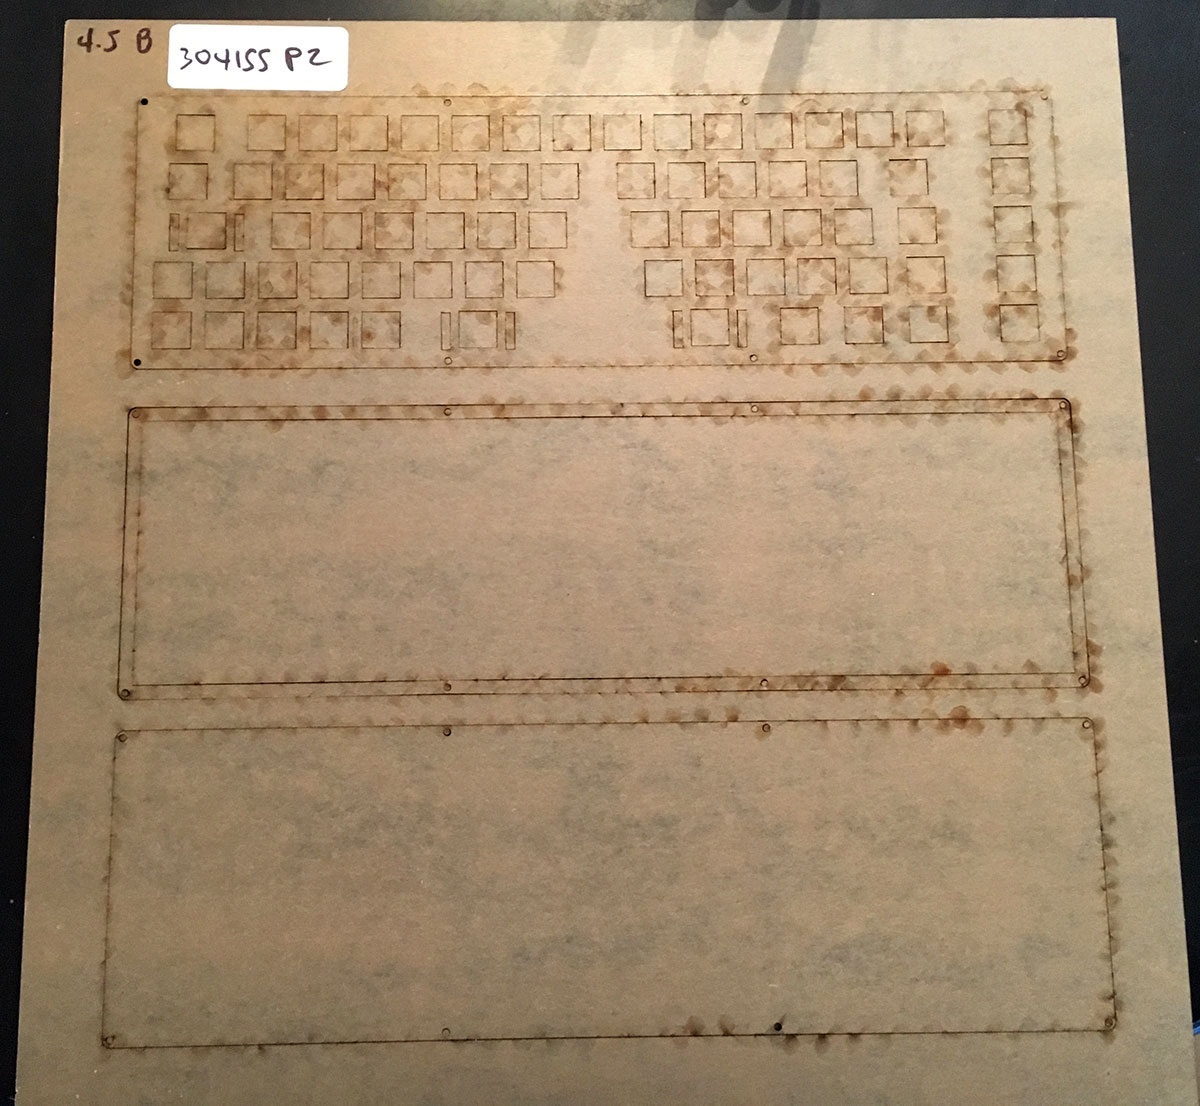 4.5 B
304155 P2